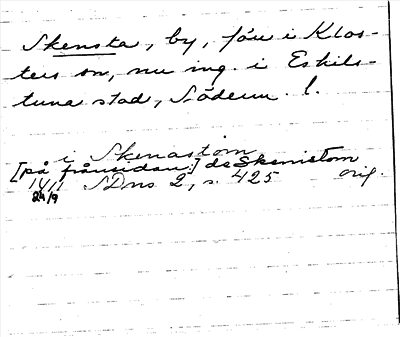 Skensta, by, förr i Klos-
ters sn, nu ing. i Eskils-
tuna stad, Söderm. l.
i Skenastom
[på frånsidan:] de Skenistom
1411 SDns 2, s. 425 orig.
24/9